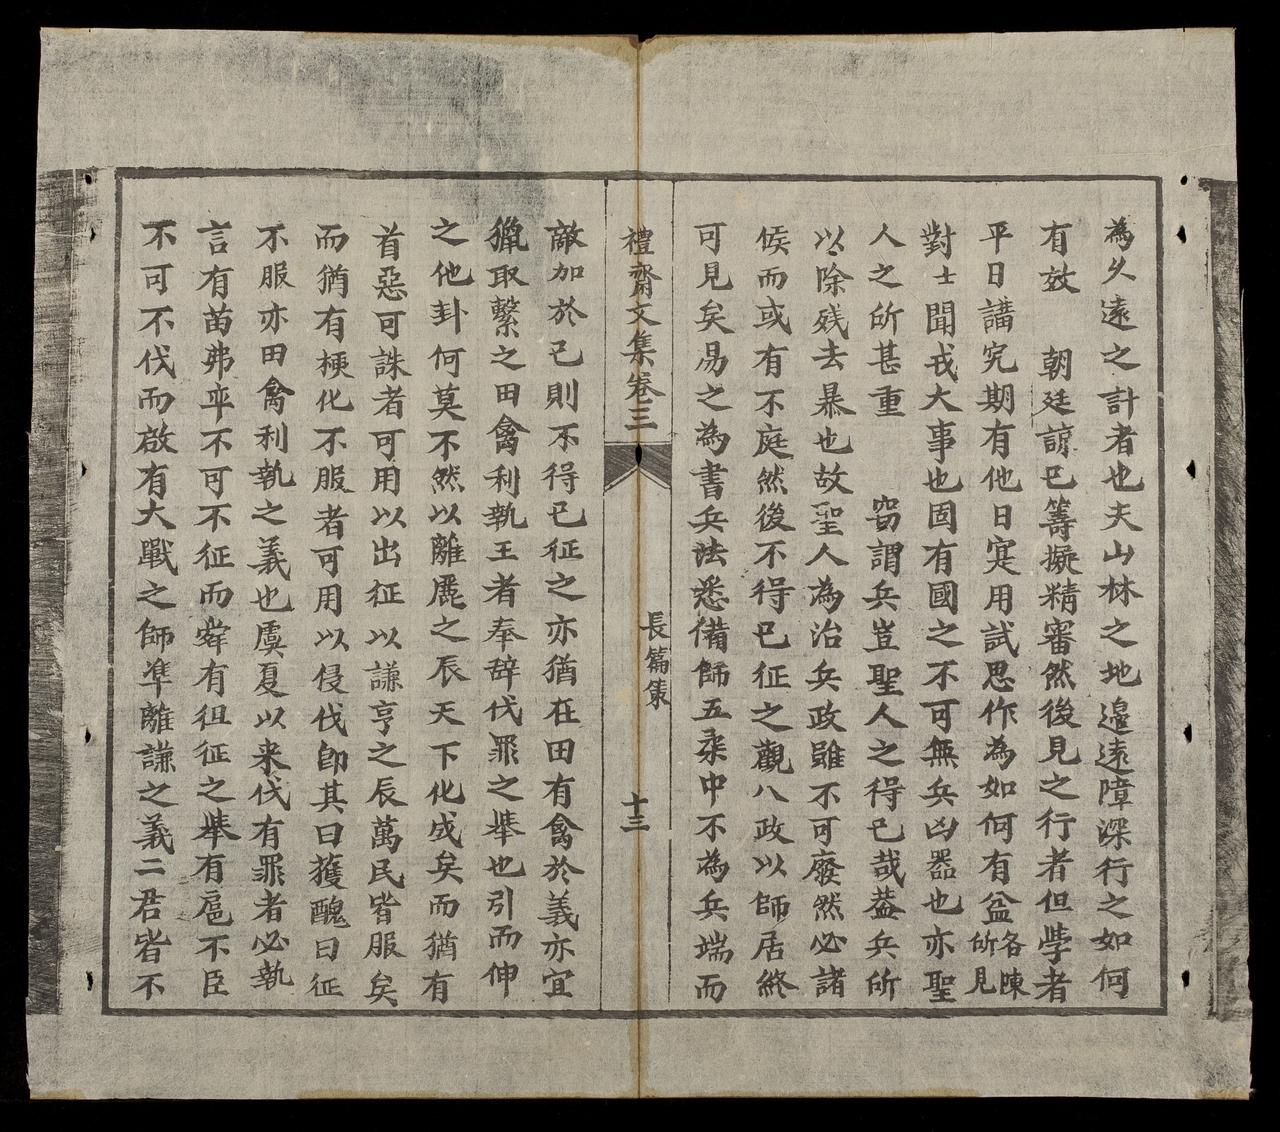 為久遠之計者也夫山林之地邊遠障深行之如何
有效　朝廷諒已籌擬精審然後見之行者但學者
平日講究期有他日寔用試思作為如何有益各陳所見
對士聞戎大事也固有國之不可無兵凶器也亦聖
人之所甚重　　竊謂兵豈聖人之得已哉蓋兵所
以除残去暴也故聖人為治兵政雖不可廢然必諸
侯而或有不庭然後不得已征之觀八政以師居終
可見矣易之為書兵法悉備師五爻中不為兵端而
禮齋文集卷三
長篇策
十三
敵加於已則不得已征之亦猶在田有禽於義亦宜
獵取繫之田禽利執王者奉辞伐罪之舉也引而伸
之他卦何莫不然以離麗之辰天下化成矣而猶有
首惡可誅者可用以出征以謙亨之辰萬民皆服矣
而猶有梗化不服者可用以侵伐卽其曰獲醜曰征
不服亦田禽利執之義也虞夏以来伐有罪者必執
言有苗弗率不可不征而舜有徂征之舉有扈不臣
不可不伐而啟有大戰之師準離謙之義二君皆不